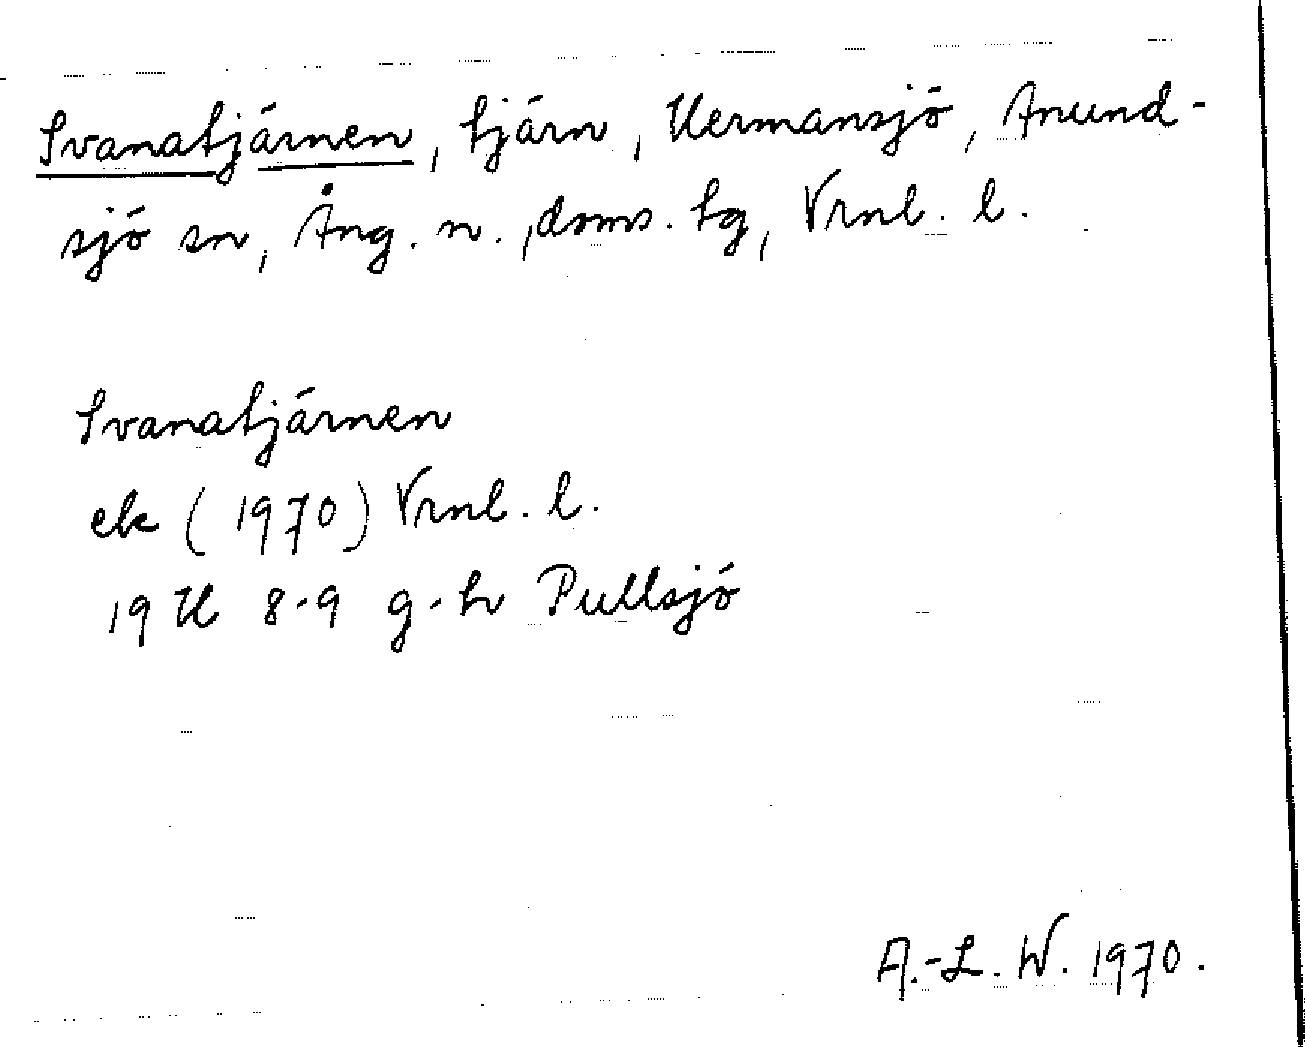 Svanatjärnen, tjärn, Hermansjö, Anund-
sjö sn, Ång. n., doms. tg, Vrnl. l.
Svanatjärnen
ek (1970) Vrnl. l.
19 H 8-9 g-h Pullsjö
A.-L. W. 1970.